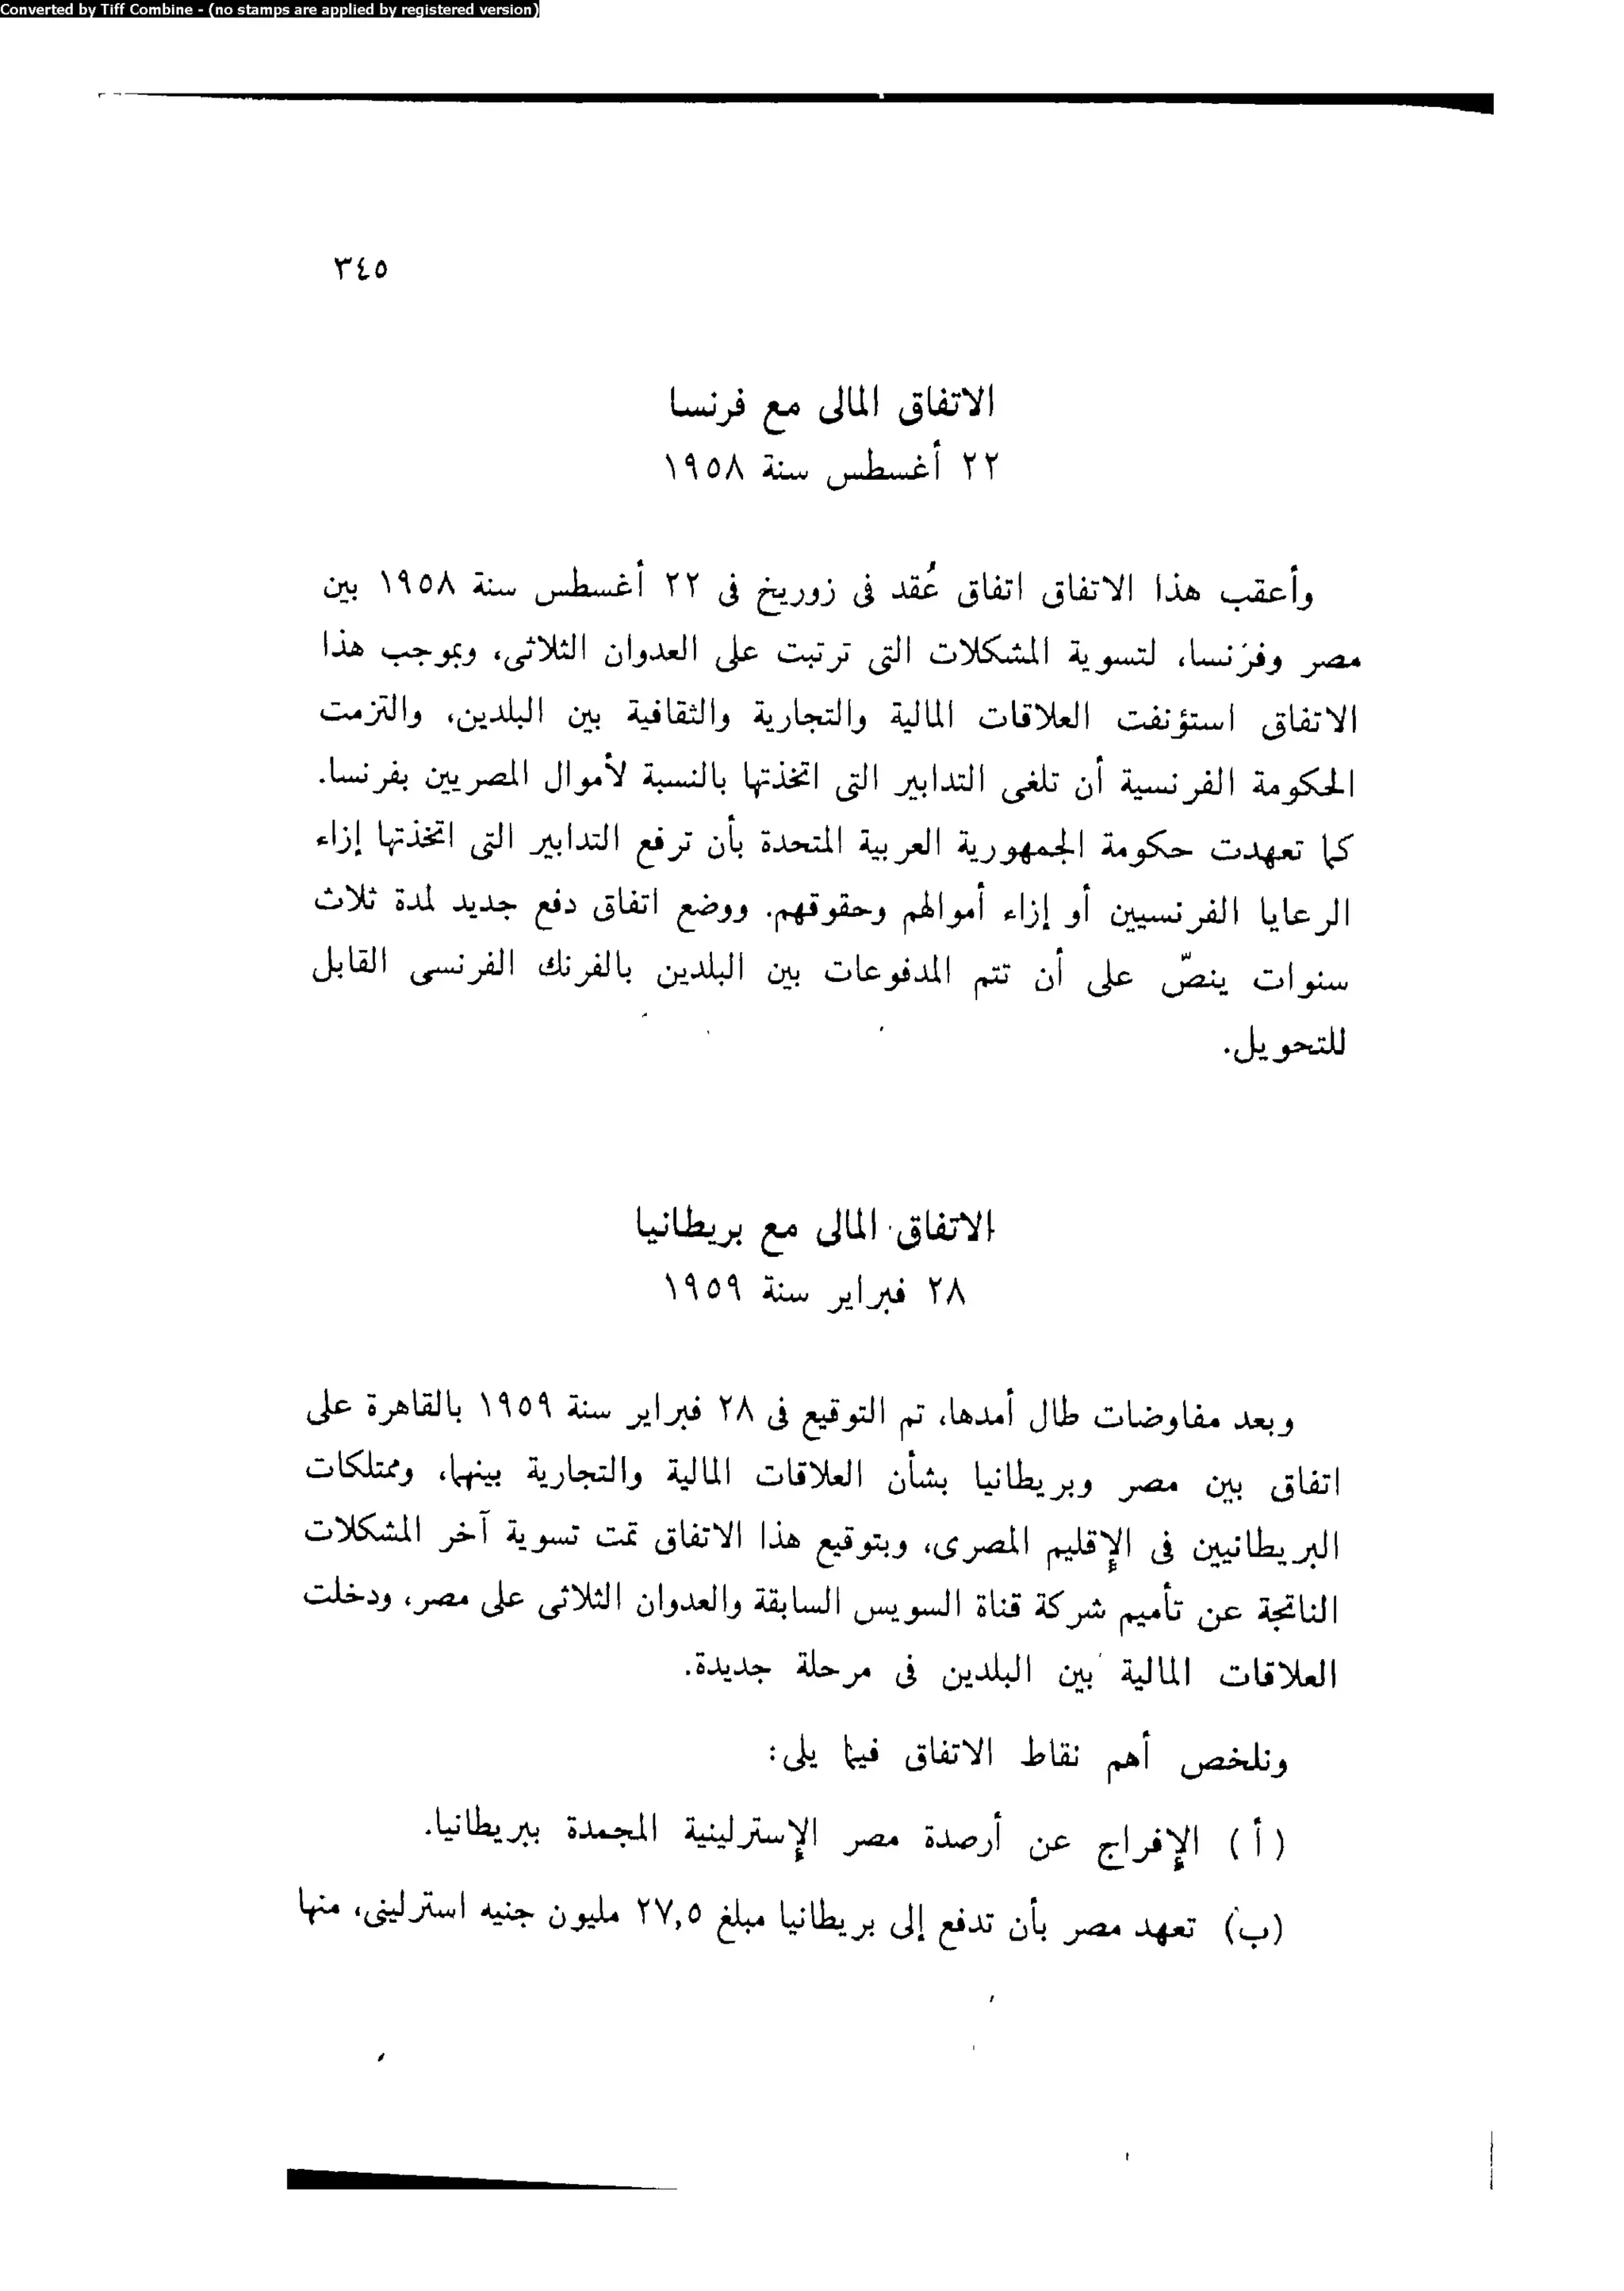 Converted by Tiff Combine - (no stamps are applied by registered version)
٣٤٥
الاتفاق المالى مع فرنسا
٢٢ أغسطس سنة ١٩٥٨
وأعقب هذا الاتفاق اتفاق عُقد فى زوريخ فى ٢٢ أغسطس سنة ١٩٥٨ بين
مصر وفرنسا، لتسوية المشكلات التى ترتبت على العدوان الثلاثى، وبموجب هذا
الاتفاق استؤنفت العلاقات المالية والتجارية والثقافية بين البلدين، والتزمت
الحكومة الفرنسية أن تلغى التدابير التى اتخذتها بالنسبة لأموال المصريين بفرنسا.
كما تعهدت حكومة الجمهورية العربية المتحدة بأن ترفع التدابير التى اتخذتها إزاء
الرعايا الفرنسيين أو إزاء أموالهم وحقوقهم. ووضع اتفاق دفع جديد لمدة ثلاث
سنوات ينصّ على أن تتم المدفوعات بين البلدين بالفرنك الفرنسى القابل
للتحويل.
الاتفاق المالى مع بريطانيا
٢٨ فبراير سنة ١٩٥٩
وبعد مفاوضات طال أمدها، تم التوقيع فى ٢٨ فبراير سنة ١٩٥٩ بالقاهرة على
اتفاق بين مصر وبريطانيا بشأن العلاقات المالية والتجارية بينهما، وممتلكات
البريطانيين فى الإقليم المصرى، وبتوقيع هذا الاتفاق تمت تسوية آخر المشكلات
الناتجة عن تأميم شركة قناة السويس السابقة والعدوان الثلاثى على مصر، ودخلت
العلاقات المالية بين البلدين فى مرحلة جديدة.
ونلخص أهم نقاط الاتفاق فيما يلى:
(أ) الإفراج عن أرصدة مصر الإسترلينية المجمدة ببريطانيا.
(ب) تعهد مصر بأن تدفع إلى بريطانيا مبلغ ٢٧,٥ مليون جنيه استرلينى، منها